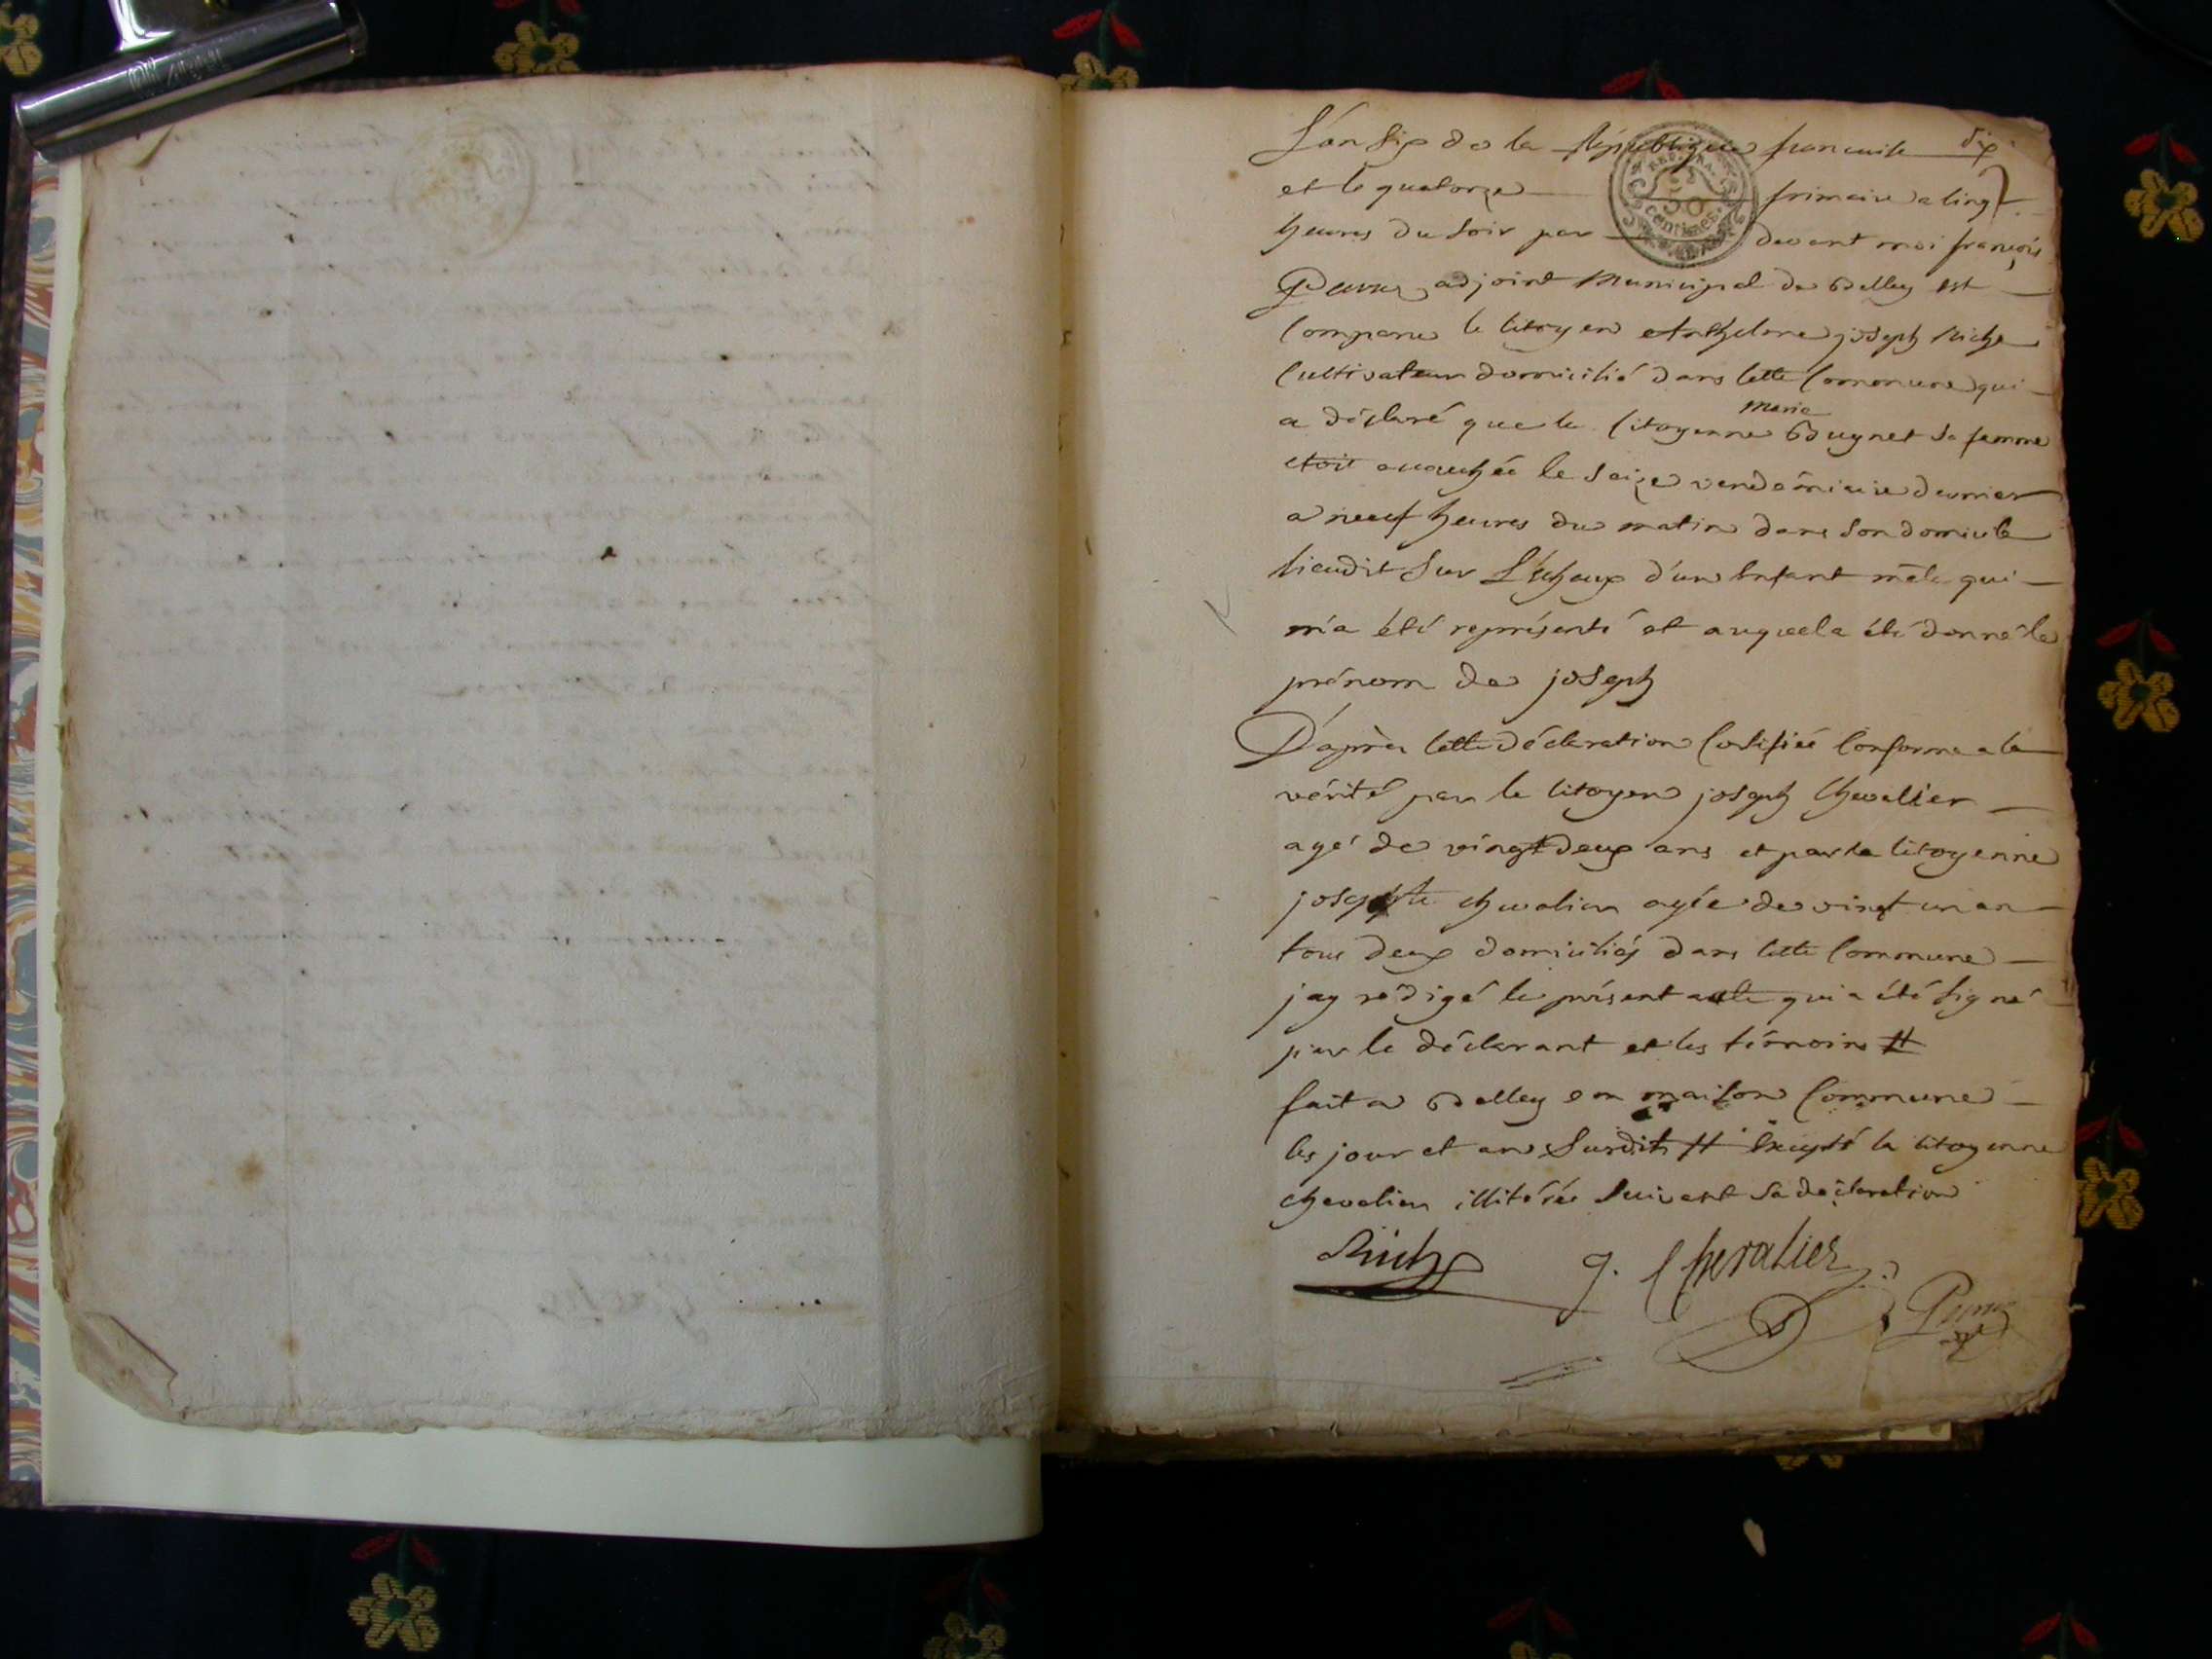 L'an six de la République francaise dix
et le quatorze frimaire a cinq
heures du soir par devant moi françois
adjoint municipal de Belley est
comparu le citoyen Anthelme joseph Riche
cultivateur domicilié dans cette commune qui
a déclaré que la citoyenne marie Bugnet sa femme
etoit accouchée le seize vendémiaire dernier
a neuf heures du matin dans son domicile
lieudit sur L'échaux d'un enfant mâle qui
m'a été représenté et auquel a été donné le
prénom de joseph
D'après cette déclaration certifiée conforme a la
vérité par le citoyen joseph chevalier
agé de vingt deux ans et par la citoyenne
josephte chevalier agée de vingt un an
tous deux domiciliés dans cette commune
jay rédigé le présent acte qui a été signé
par le déclarant et les témoins #
fait a Belley en maison commune
les jour et an susdits # excepté la citoyenne
chevalier illitérée suivant sa déclaration
Riche J. Chevalier
50
centimes